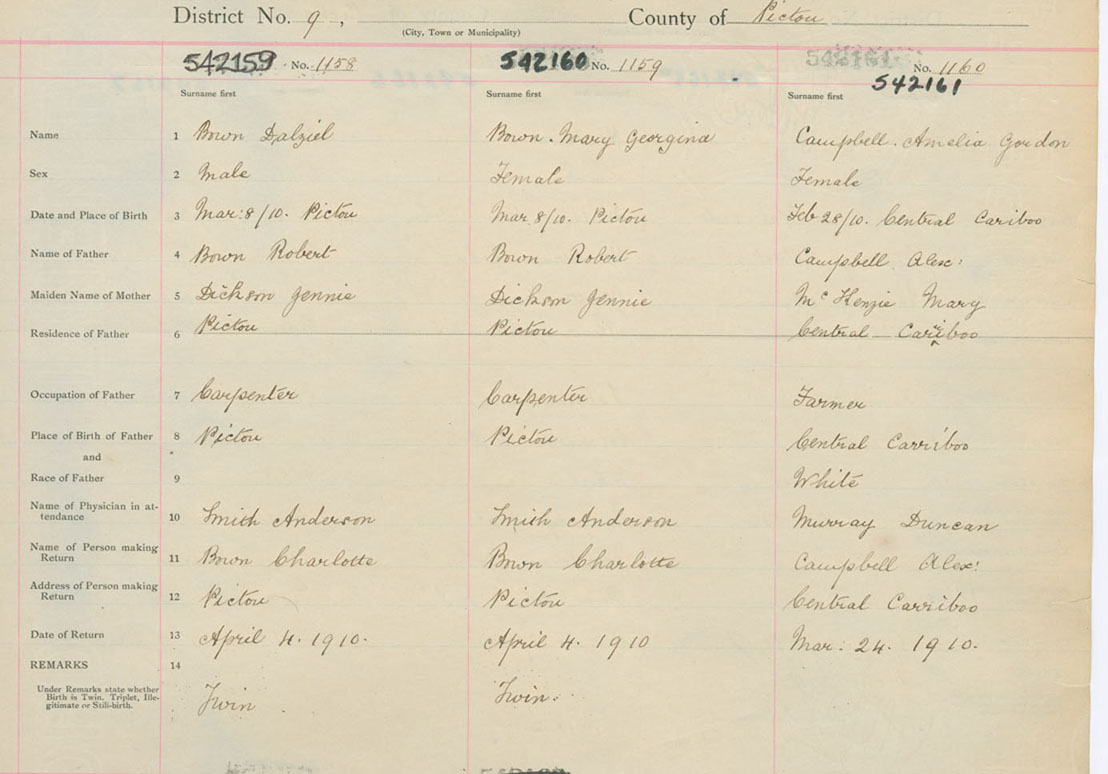 District No. 9, County of Pictou
(City, Town or Municipality)
542159 No. 1158 542160 No. 1159 542161 No. 1160
542161
Surname first Surname first Surname first
Name 1 Bown Dalziel Bown. Mary Georgina Campbell. Amelia Gordon
Sex 2 Male Female Female
Date and Place of Birth 3 Mar: 8/10. Pictou Mar 8/10. Pictou Feb 28/10. Central Cariboo
Name of Father 4 Bown Robert Bown Robert Campbell Alex:
Maiden Name of Mother 5 Dickson Jennie Dickson Jennie McKenzie Mary
Residence of Father 6 Pictou Pictou Central Carriboo
Occupation of Father 7 Carpenter Carpenter Farmer
Place of Birth of Father 8 Pictou Pictou Central Carriboo
and
Race of Father 9 White
Name of Physician in at-
tendance 10 Smith Anderson Smith Anderson Murray Duncan
Name of Person making
Return 11 Bown Charlotte Bown Charlotte Campbell Alex:
Address of Person making
Return 12 Pictou Pictou Central Carriboo
Date of Return 13 April 4. 1910. April 4. 1910 Mar: 24. 1910.
REMARKS 14
Under Remarks state whether
Birth is Twin, Triplet, Ille-
gitimate or Still-birth. Twin Twin.